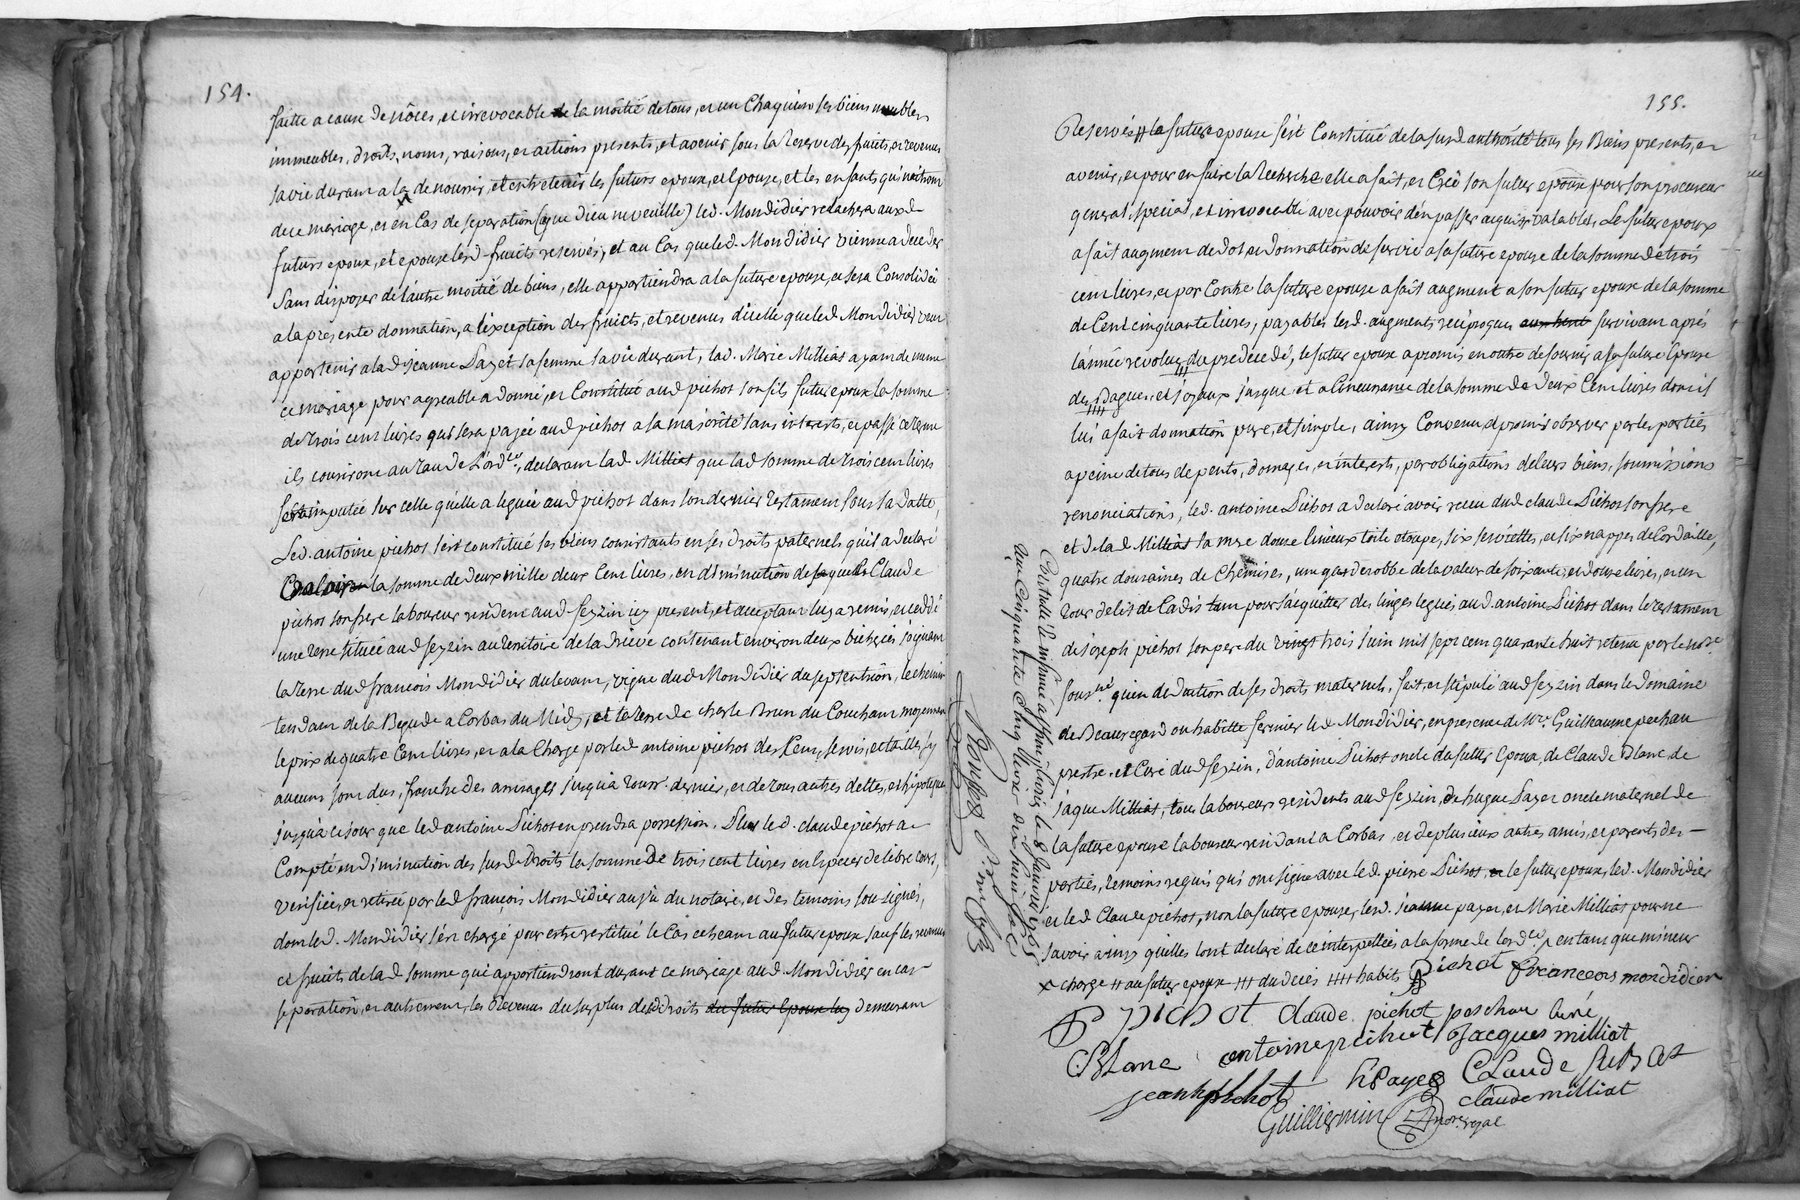 154.
faitte a cause de nôces, et irrevocable de la moitié de tous, et un Chaqu'un ses biens meubles
immeubles, droits, noms, raisons, et actions presents, et avenir sous la reserve des fruits, et revenus
sa vie durant a la de nourrir, et entretenir les futurs epoux, et epouse, et les enfants qui naitront
de ce mariage, et en Cas de separation (que dieu ne veuille) led. Mondidier relachera auxd.
futurs epoux, et epouse lesd. fruits reservés, et au Cas que led. Mondidier vienne a deceder
sans disposer de l'autre moitié de biens, elle appartiendra a la future epouse, et sera Consolidée
a la presente donnation, a l'exception des fruicts, et revenus d'icelle que led. Mondidier veut
appartenir a lad. jeanne Payet sa femme sa vie durant, lad. Marie Milliat ayant de meme
ce mariage pour agreable a donné, et Constitué aud. pichot son fils futur epoux la somme
de trois cent livres qui sera payée aud. pichot a sa majorité sans interets, et passé ce terme
ils courront au taux de l'ord.ce, declarant lad. Milliat que lad. somme de trois cent livres
sera imputée sur celle qu'elle a leguée aud. pichot dans son dernier testament sous sa datte,
Led. antoine pichot s'est constitué ses biens consistants en ses droits paternels qu'il a declaré
valoir la somme de deux mille deux Cent livres, en diminution de laquelle Claude
pichot son frere laboureur resident aud. feyzin icy present, et acceptant luy a remis, et ceddé
une terre située aud. feyzin au territoire de la Drieve contenant environ deux bicherées joignant
la terre dud. françois Mondidier du levant, vigne dud. Mondidier du septentrion, le chemin
tendant de la Begude a Corbas du Midy, et la terre de charle Brun du Couchant moyennant
le prix de quatre Cent livres, et a la Charge par led. antoine pichot des Cens, servis, et tailles, sy
aucuns sont dus, franche des arrerages jusqu'a la toussts. dernier, et de tous autres dettes, et hipoteques
jusqu'a ce jour que led. antoine Pichot en prendra possession. Plus led. claude pichot a
Compté en diminution des susd. Droits la somme de trois cent livres en Especes de libre cours,
verifiée, et retirée par led. françois Mondidier au vu du notaire, et des temoins sous-signés,
dont led. Mondidier s'est chargé pour estre restitué le Cas echeant aud. futur epoux sauf les revenus
et fruits de lad. somme qui appartiendront durant ce mariage aud. Mondidier en cas
separation, et autrement, les Revenus du surplus desd. droits du futur Epoux luy demeurant
155.
Reservés # la future epouse s'est Constitué de la susd. authorité tous ses Biens presents, et
avenir, et pour en faire la recherche elle a fait, et Créé son futur epoux pour son procureur
general, special, et irrevocable avec pouvoir d'en passer acquits valables, Le futur epoux
a fait augment de dot ou donnation de survie a sa future epouse de la somme de trois
cent livres, et par Contre la future epouse a fait augment a son futur epoux de la somme
de Cent cinquante livres, payables lesd. augments reciproques survivant aprés
l'année revolue du predecedé, le futur epoux a promis en outre de fournir a sa future Epouse
des Bagues, et Joyaux jusque et a Concurrance de la somme de deux Cent livres dont il
lui a fait donnation pure, et simple, ainsy Convenu et promis observer par les parties
a peine de tous depents, domages, et interests, par obligations de leurs biens, soumissions
renonciations, led. antoine Pichot a declaré avoir receu dud. claude Pichot son frere
et de lad. Milliat sa mere douze linceux toile etoupe, six serviettes, et six nappes de Cordaille,
quatre douzaines de Chemises, une garderobbe de la valeur de soixante, et douze livres, et un
tour de lit de Cadis tant pour s'acquitter des linges legués aud. antoine Pichot dans le testament
de joseph pichot son pere du vingt trois Juin mil sept cent quarante huit retenu par le notre.
sous.né qu'en deduction de ses droits maternels, fait, et stipulé aud. feyzin dans le domaine
de Beauregard ou habitte fermier led. Mondidier, en presence de Mre. Guilleaume peschau
prestre, et Curé dud. feyzin, d'antoine Pichot oncle du futur Epoux, de Claude Blanc de
jaque Milliat, tous laboureurs residents aud. feyzin, de hugue Payet oncle maternel de
la future epouse laboureur residant a Corbas, et de plusieurs autres amis, et parents des
parties, temoins requis qui ont signé avec led. pierre Pichot, le futur epoux, led. Mondidier
et led. Claude pichot, non la future epouse, lesd. jeanne payet, et Marie Milliat pour ne
sçavoir ainsy qu'elles l'ont declaré de ce interpellées a la forme de l'ord.ce / en tant que mineur
x charge # au futur epoux ### du decés #### habits Pichot françois mondidier
P pichot claude pichot peschau curé
Blanc antoine pichot Jacques milliat
jean pichot h Payet Claude
claude milliat
Guilliermin notre. royal
Controllé